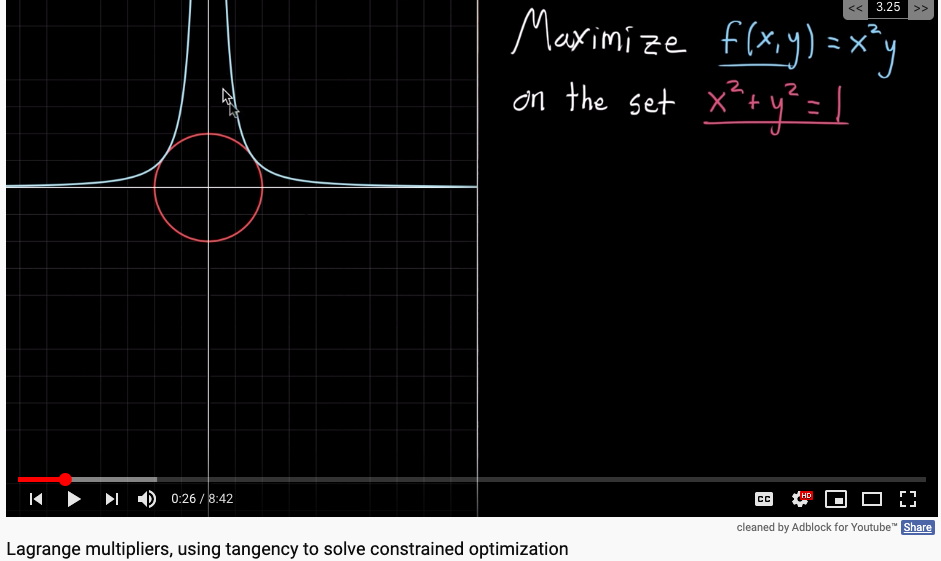 << 3.25 >>
Maximize f(x,y) = x²y
on the set x² + y² = 1
0:26 / 8:42
CC
HD
cleaned by Adblock for Youtube™ Share
Lagrange multipliers, using tangency to solve constrained optimization